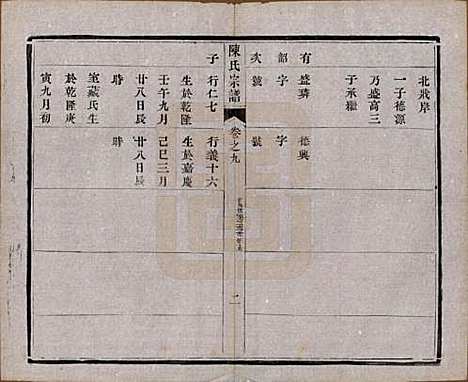 北戕岸
一子德源
乃盛高三
子承繼
有盛璘
德興
韶字
字
次號
號
陳氏宗譜
卷之九
二
子
行仁七
行義十六
生於乾隆
生於嘉慶
壬午九月
己巳三月
廿八日辰
廿八日辰
時
時
室戴氏生
於乾隆庚
寅九月初